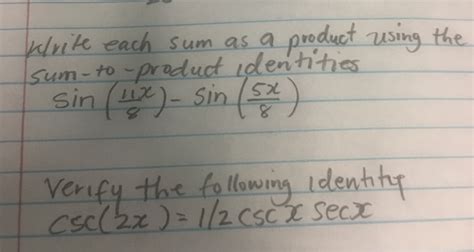 Write each sum as a product using the
sum-to-product identities
sin (11x/8) - sin (5x/8)
Verify the following identity
csc(2x) = 1/2 csc x sec x